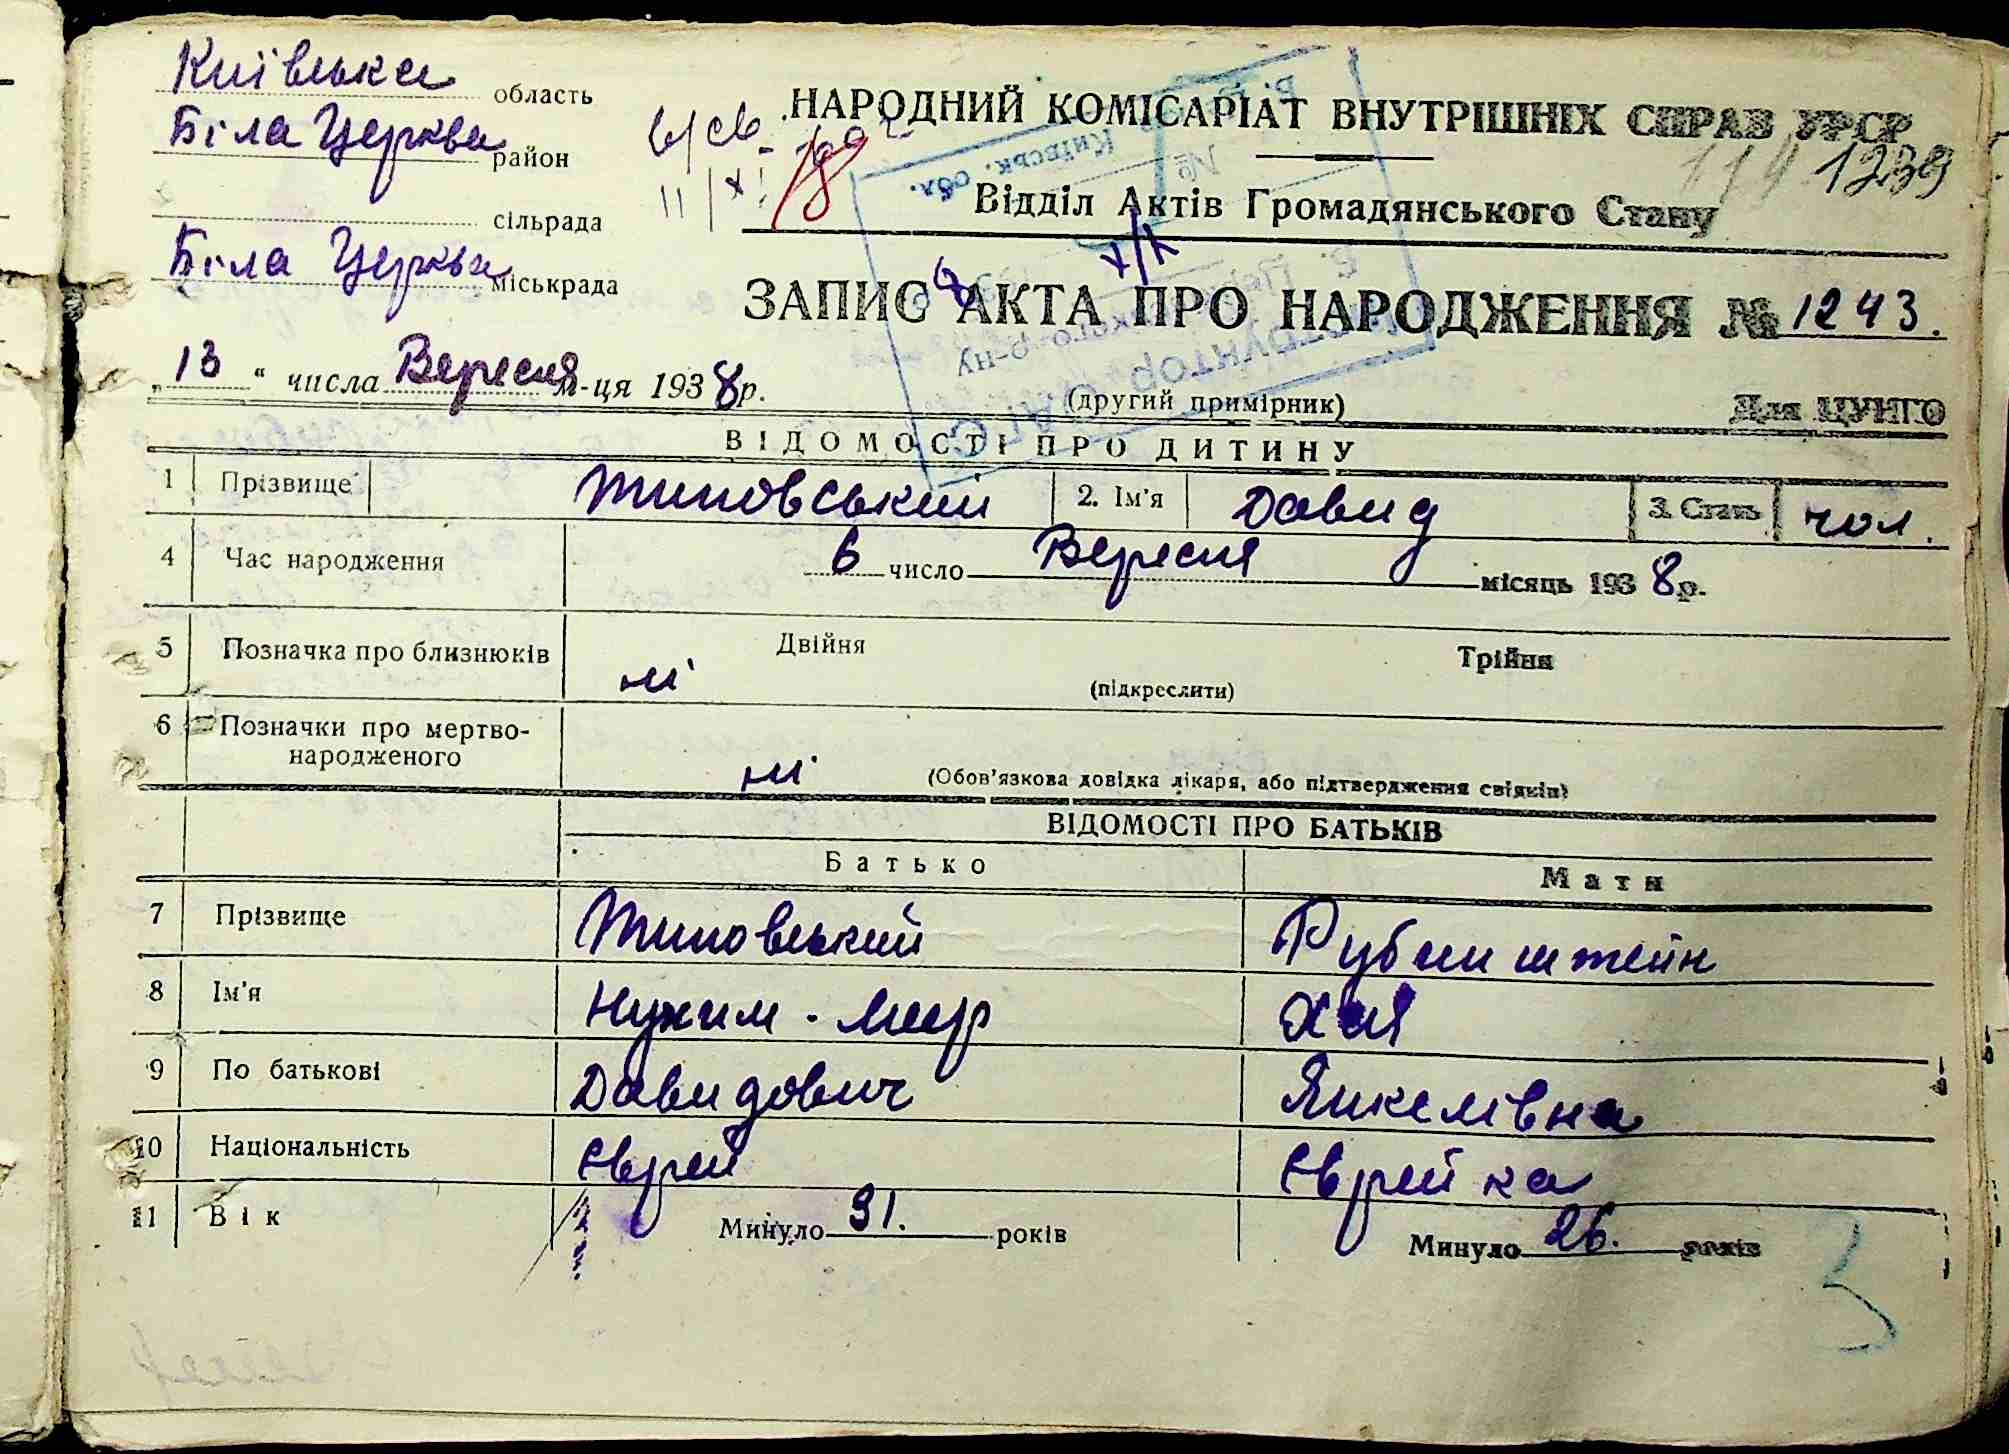 Київська область
Біла Церква район
сільрада
Біла Церква міськрада
НАРОДНИЙ КОМІСАРІАТ ВНУТРІШНІХ СПРАВ УРСР
1239
Відділ Актів Громадянського Стану
ЗАПИС АКТА ПРО НАРОДЖЕННЯ № 1243.
„13“ числа Вересня м-ця 1938р.
(другий примірник)
Для ЦУНГО
ВІДОМОСТІ ПРО ДИТИНУ
1 Прізвище Типовський 2. Ім'я Давид 3. Стать чол.
4 Час народження 6 число Вересня місяць 1938р.
5 Позначка про близнюків ні Двійня Трійня
(підкреслити)
6 Позначки про мертво-
народженого ні (Обов'язкова довідка лікаря, або підтвердження свідків)
ВІДОМОСТІ ПРО БАТЬКІВ
Батько Мати
7 Прізвище Типовський Рубинштейн
8 Ім'я Нухим-Меер Хая
9 По батькові Давидович Янкелівна
10 Національність Єврей Єврейка
11 Вік Минуло 31. років Минуло 26. років